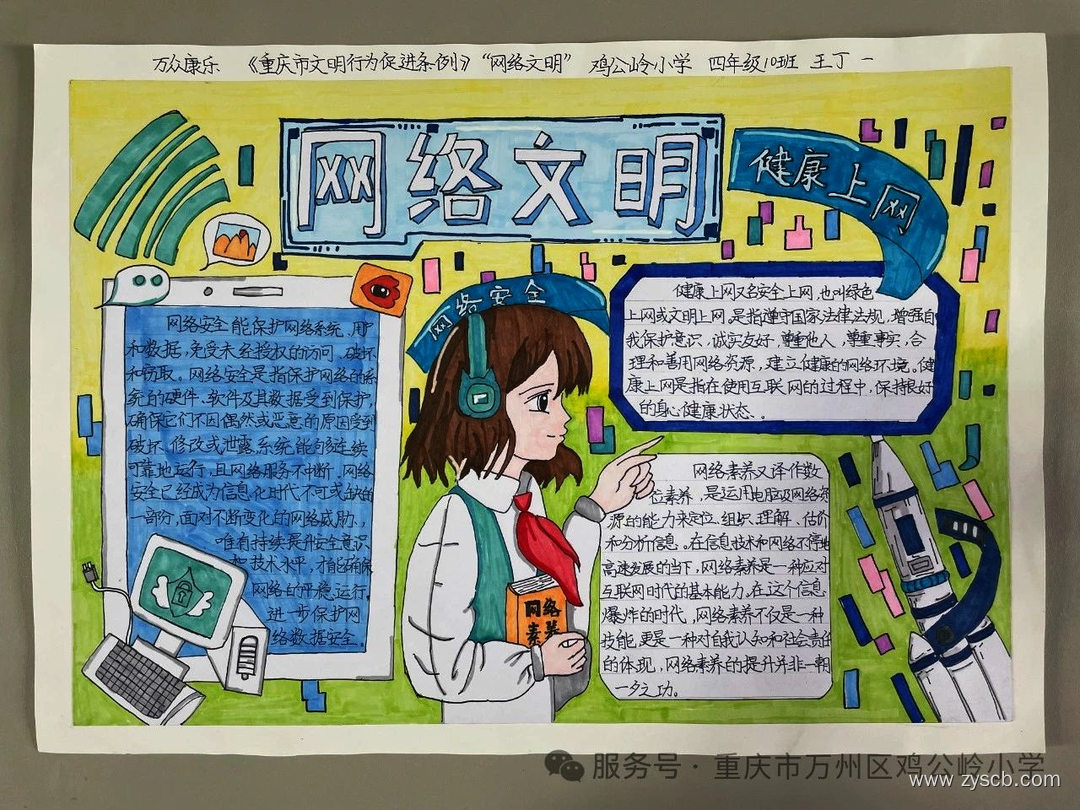 万众康乐 《重庆市文明行为促进条例》“网络文明” 鸡公岭小学 四年级10班 王丁一
网络文明
健康上网
网络安全
网络安全能保护网络系统、用户
和数据,免受未经授权的访问、破坏
和窃取。网络安全是指保护网络的系
统的硬件、软件及其数据受到保护,
确保它们不因偶然或恶意的原因受到
破坏、修改或泄露,系统能够连续
可靠地运行,且网络服务不中断,网络
安全已经成为信息化时代不可或缺的
一部分,面对不断变化的网络威胁,
唯有持续提升安全意识
和技术水平,才能确保
网络的平稳运行,
进一步保护网
络数据安全。
健康上网又名安全上网,也叫绿色
上网或文明上网。是指遵守国家法律法规,增强自
我保护意识,诚实友好,尊重他人,尊重事实,合
理和善用网络资源,建立健康的网络环境。健
康上网是指在使用互联网的过程中,保持良好
的身心健康状态。
网络素养又译作数
位素养,是运用电脑及网络资
源的能力来定位、组织、理解、估价
和分析信息。在信息技术和网络不停地
高速发展的当下,网络素养是一种应对
互联网时代的基本能力。在这个信息
爆炸的时代,网络素养不仅是一种
技能,更是一种对自我认知和社会责任
的体现,网络素养的提升并非一朝
一夕之功。
网络
素养
服务号·重庆市万州区鸡公岭小学
www.zyscb.com